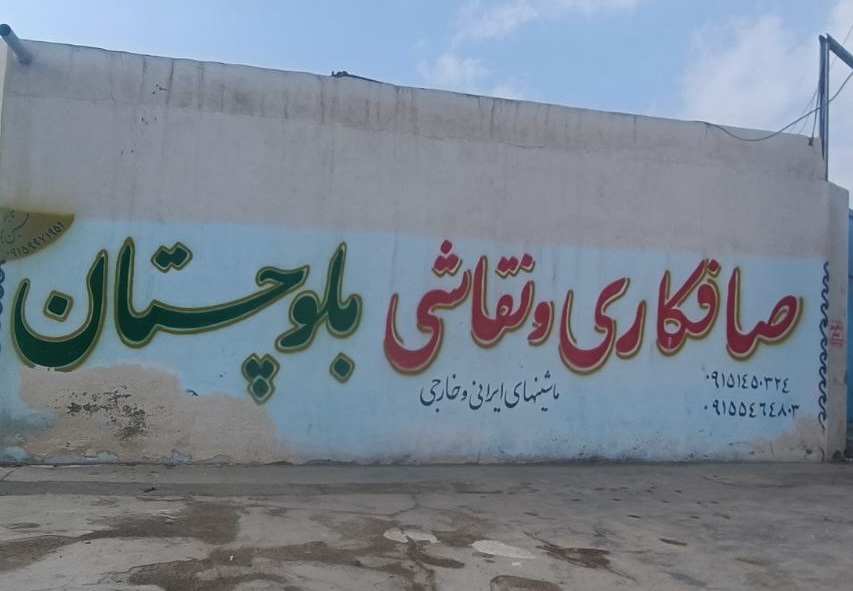 صافکاری و نقاشی بلوچستان
ماشینهای ایرانی و خارجی
۰۹۱۵۱۴۵۰۳۲۴
۰۹۱۵۵۴۶۴۸۰۳
۰۹۱۵۹۹۷۱۹۵۱